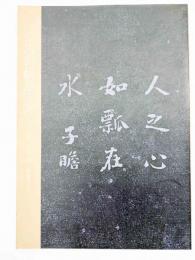 人之心
如瓢在
水 子瞻